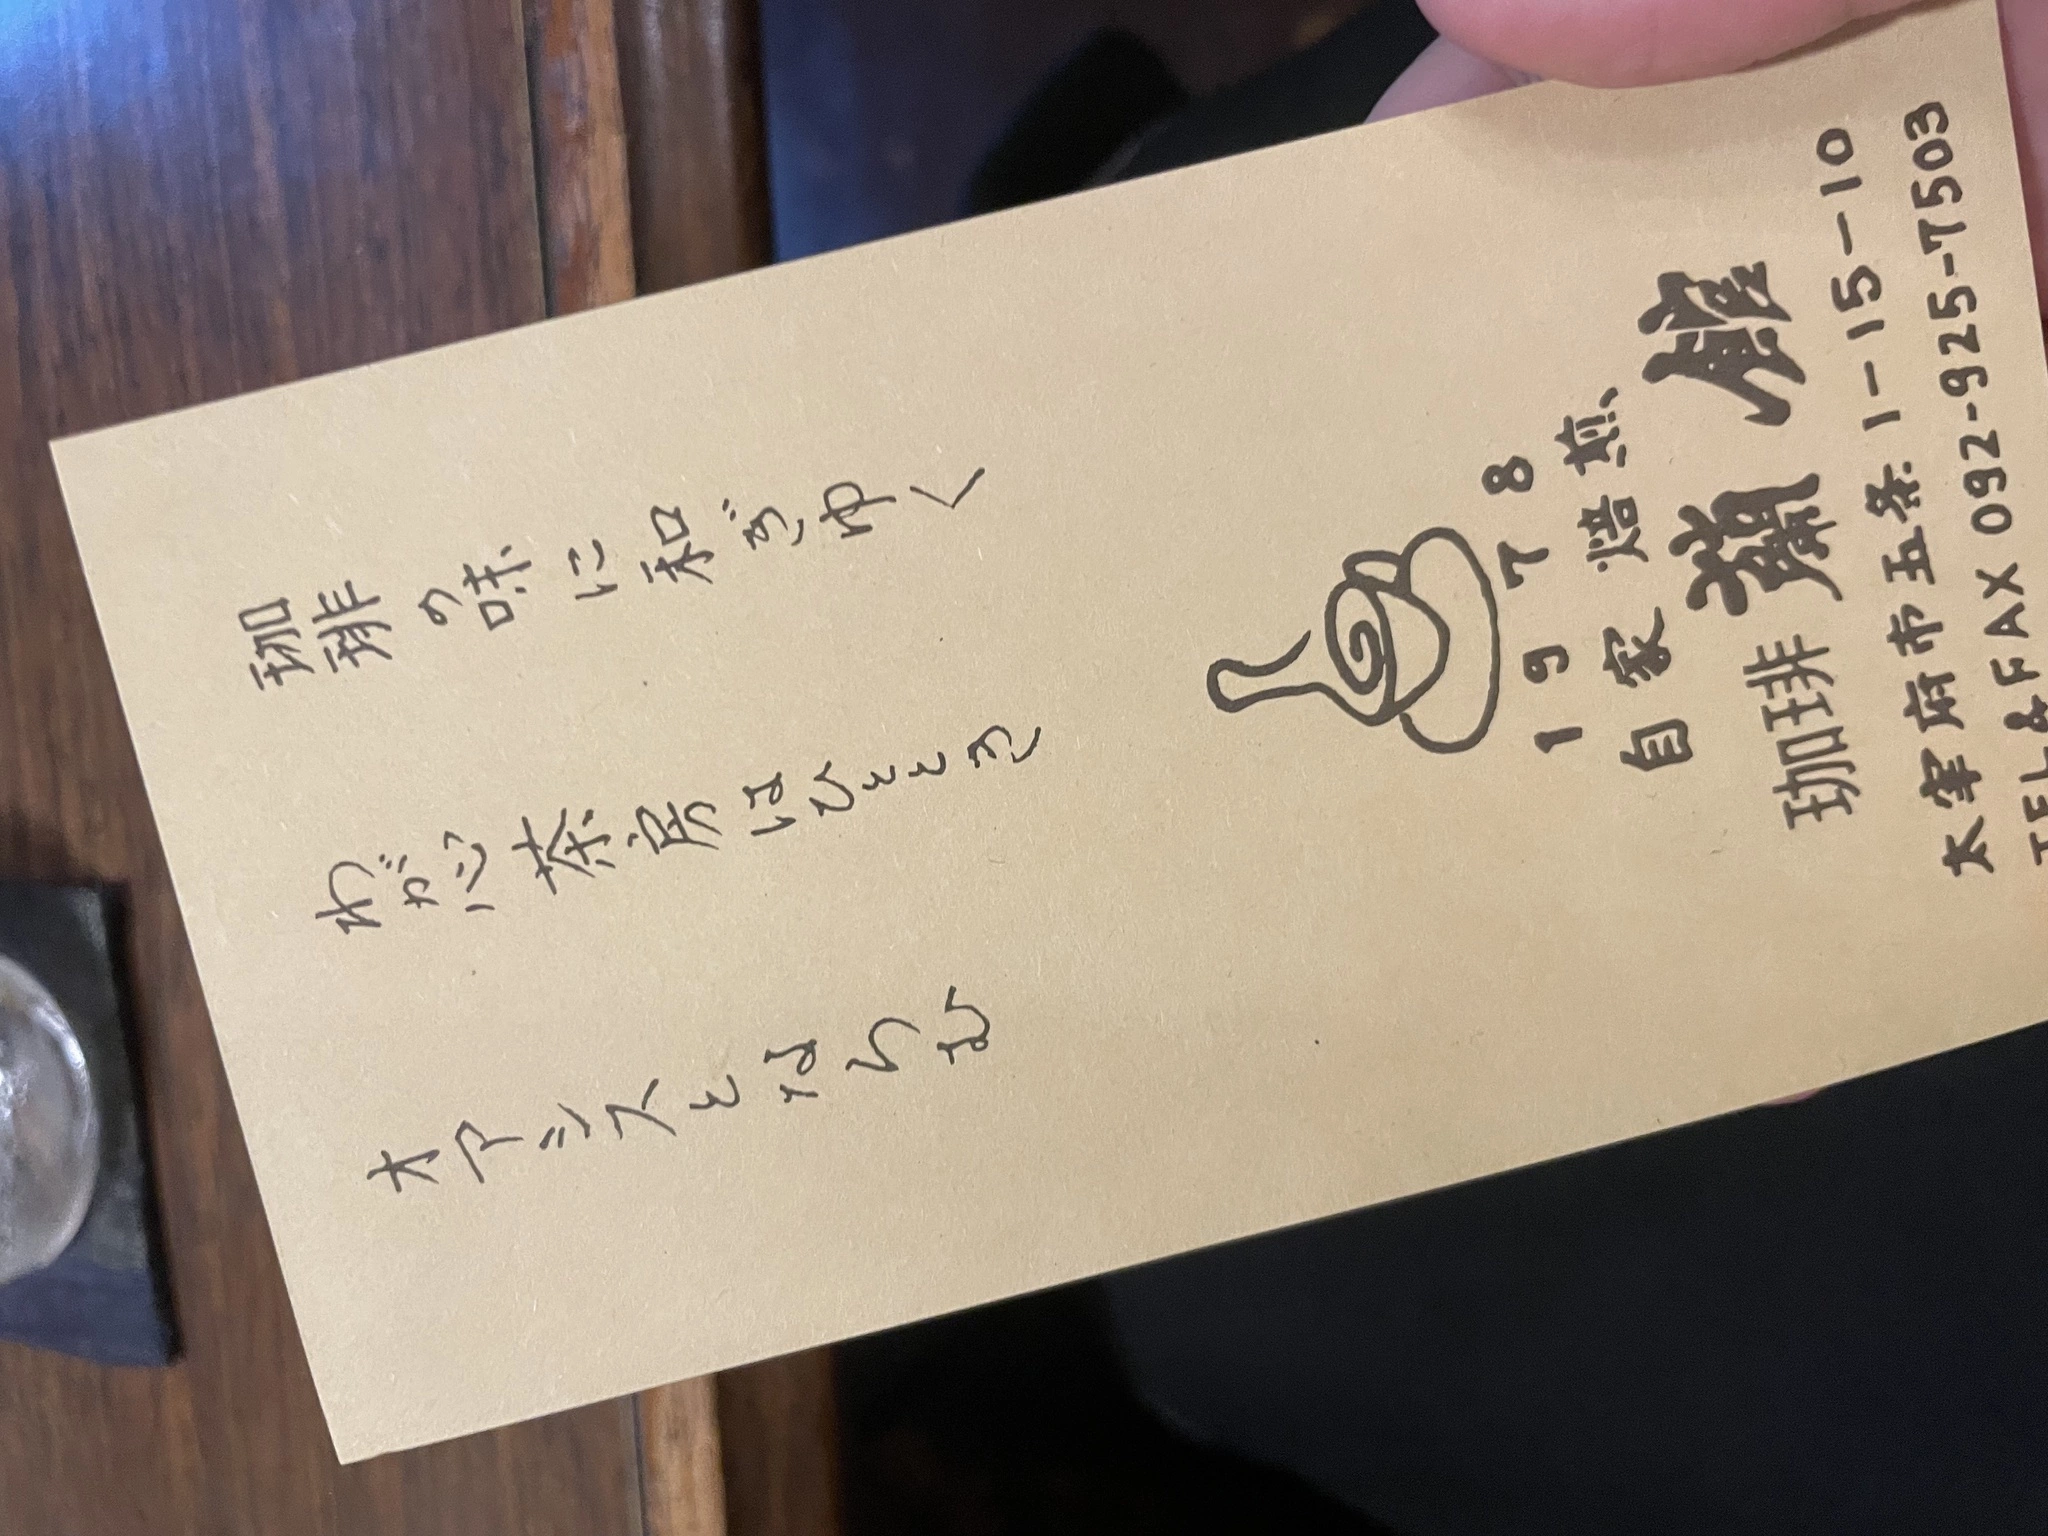 珈琲の味に和ぎゆく
わが心茶房はひととき
オアシスとならむ
1978
自家焙煎
珈琲 蘭館
太宰府市五条1-15-10
TEL&FAX 092-925-7503